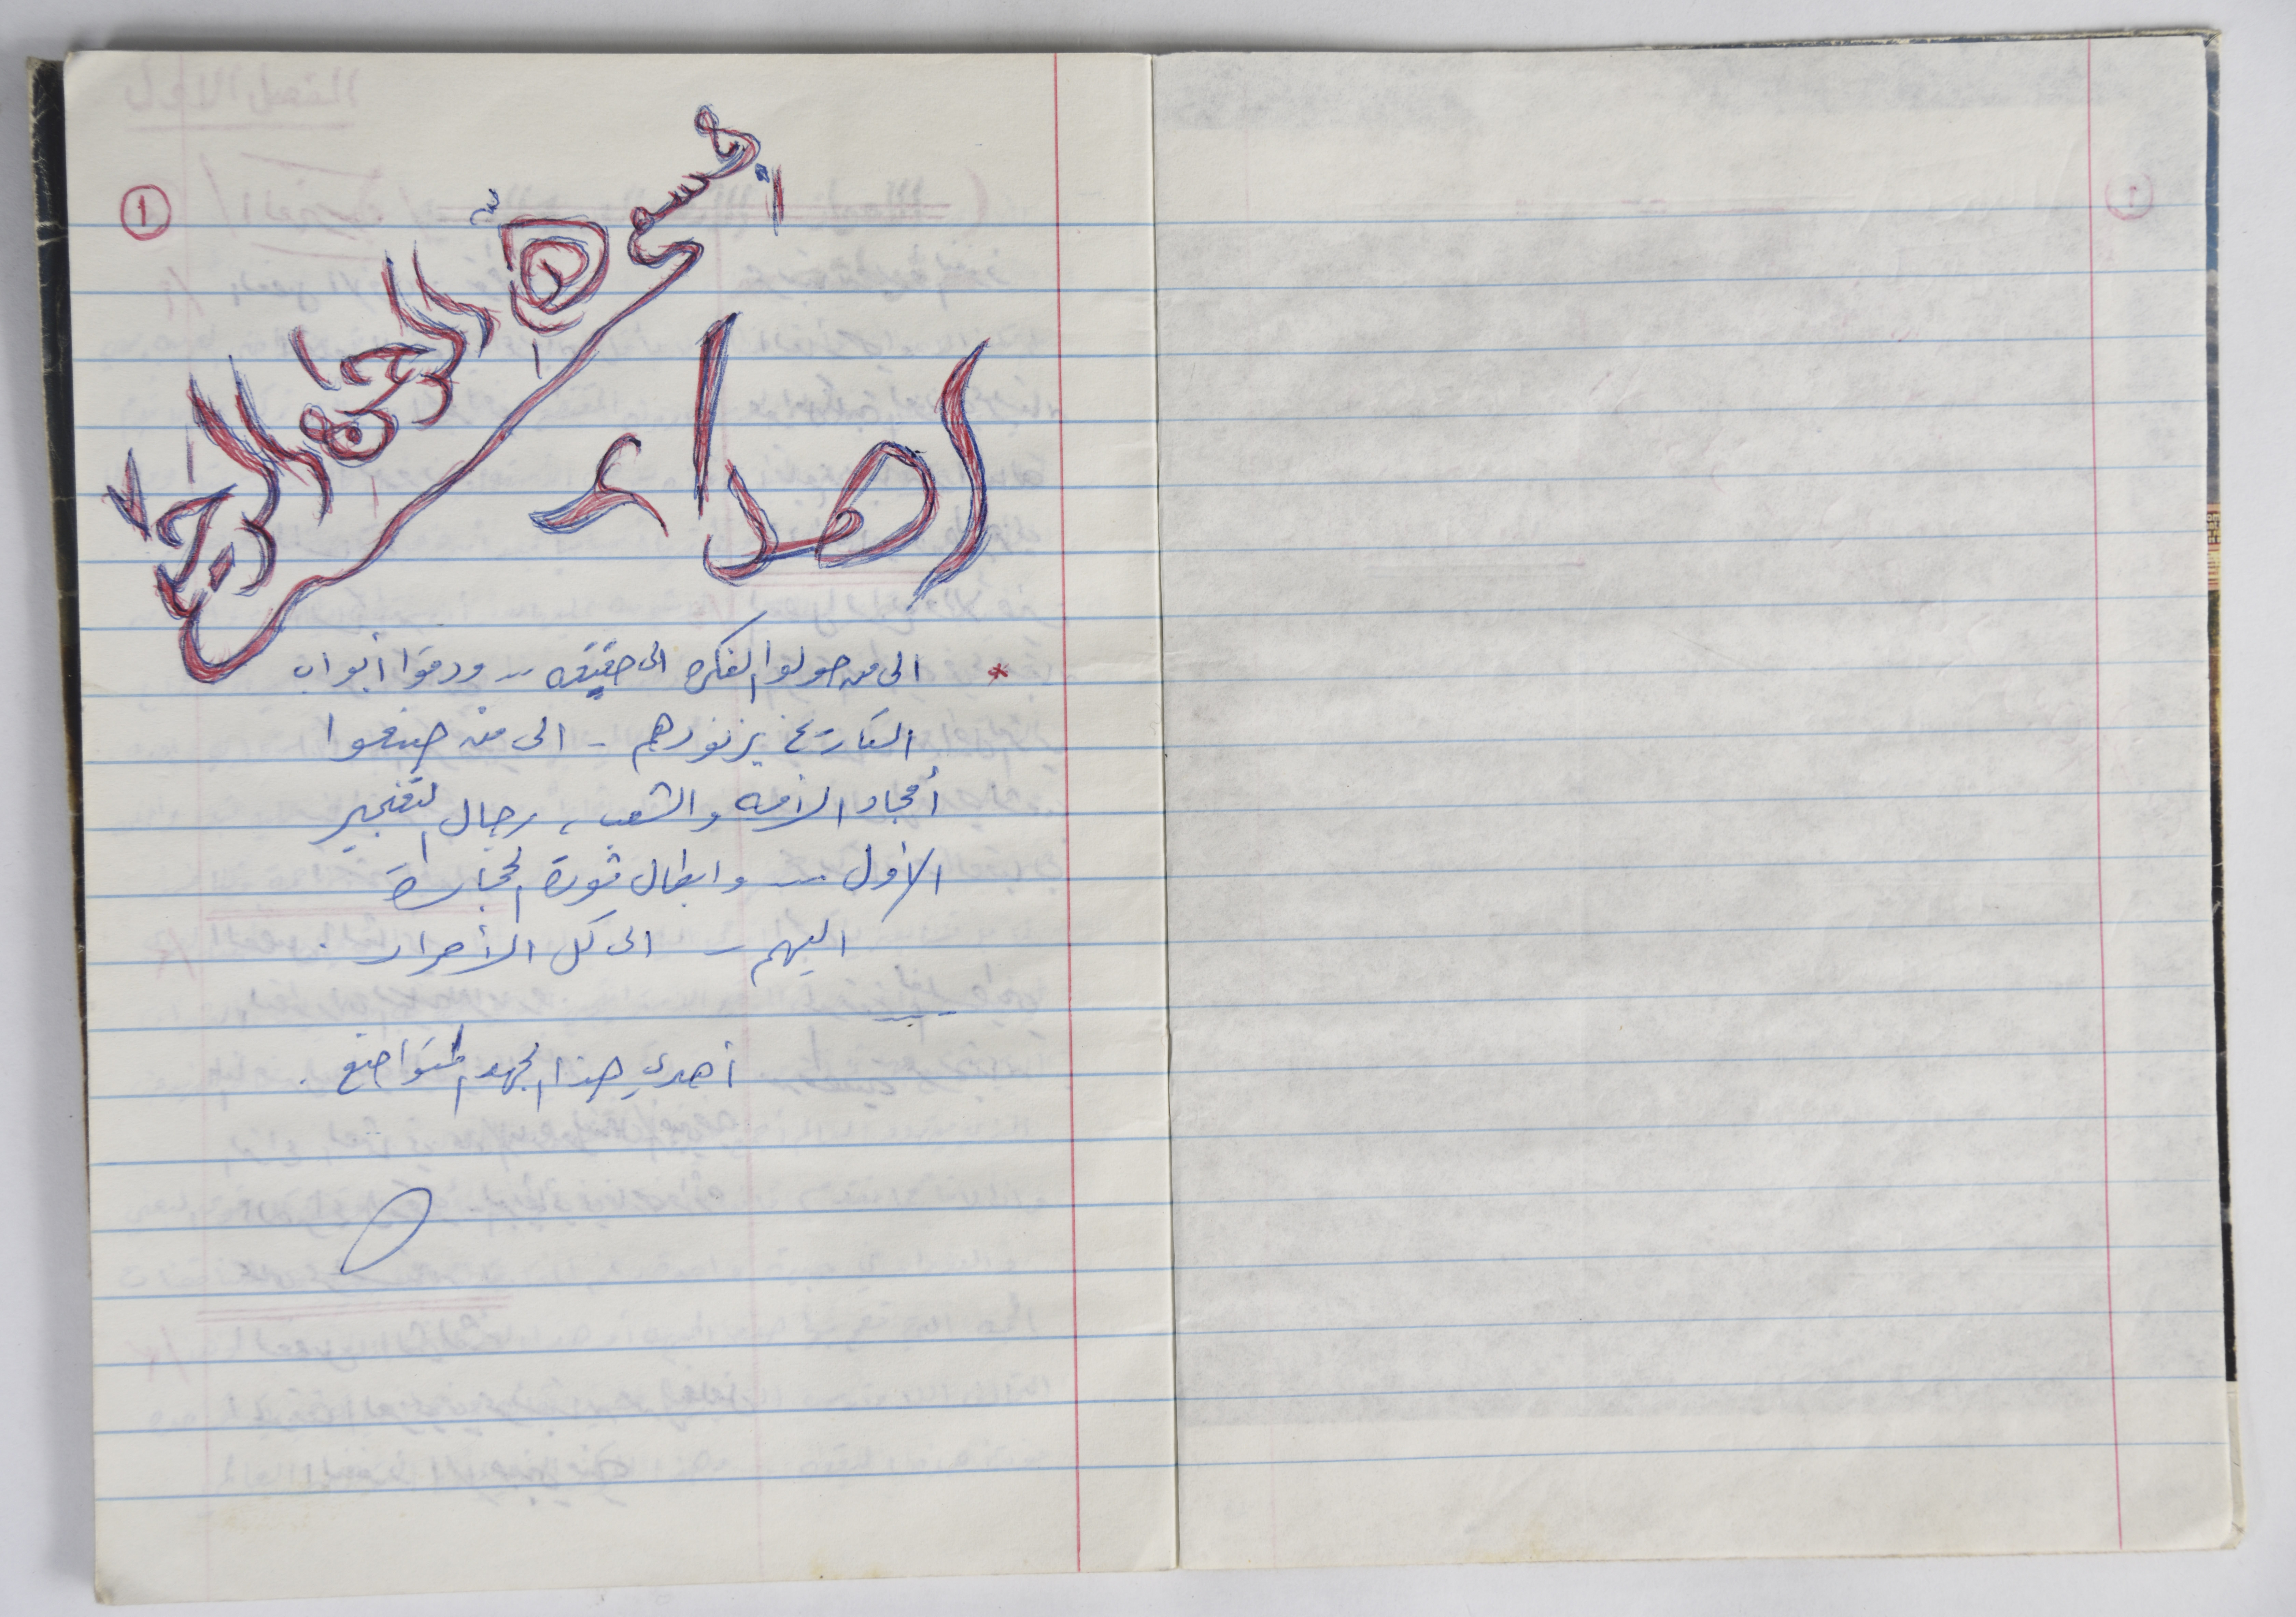 بسم الله الرحمن الرحيم
١
اهداء
* الى من حولوا الفكره الى حقيقه .. ودقوا أبواب
التاريخ بزنودهم - الى من صنعوا
أمجاد الأمه والشعب ، رجال التفجير
الأول ... وابطال ثورة الحجارة
اليهم - الى كل الأحرار .
أهدي هذا الجهد المتواضع .